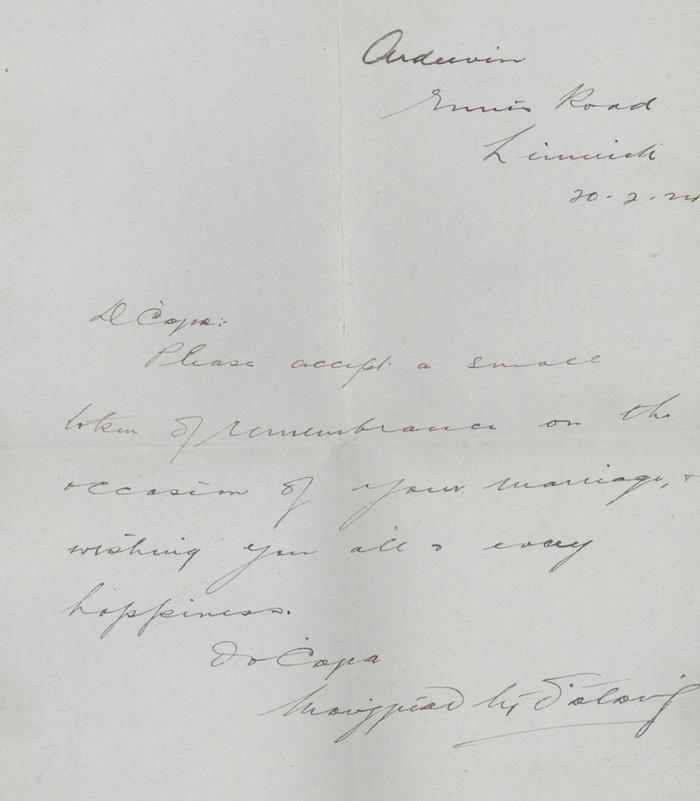 Ardeevin
Ennis Road
Limerick
20-2-24
A Ċara:
Please accept a small
token of remembrance on the
occasion of your marriage, &
wishing you all & every
happiness.
Do Ċara